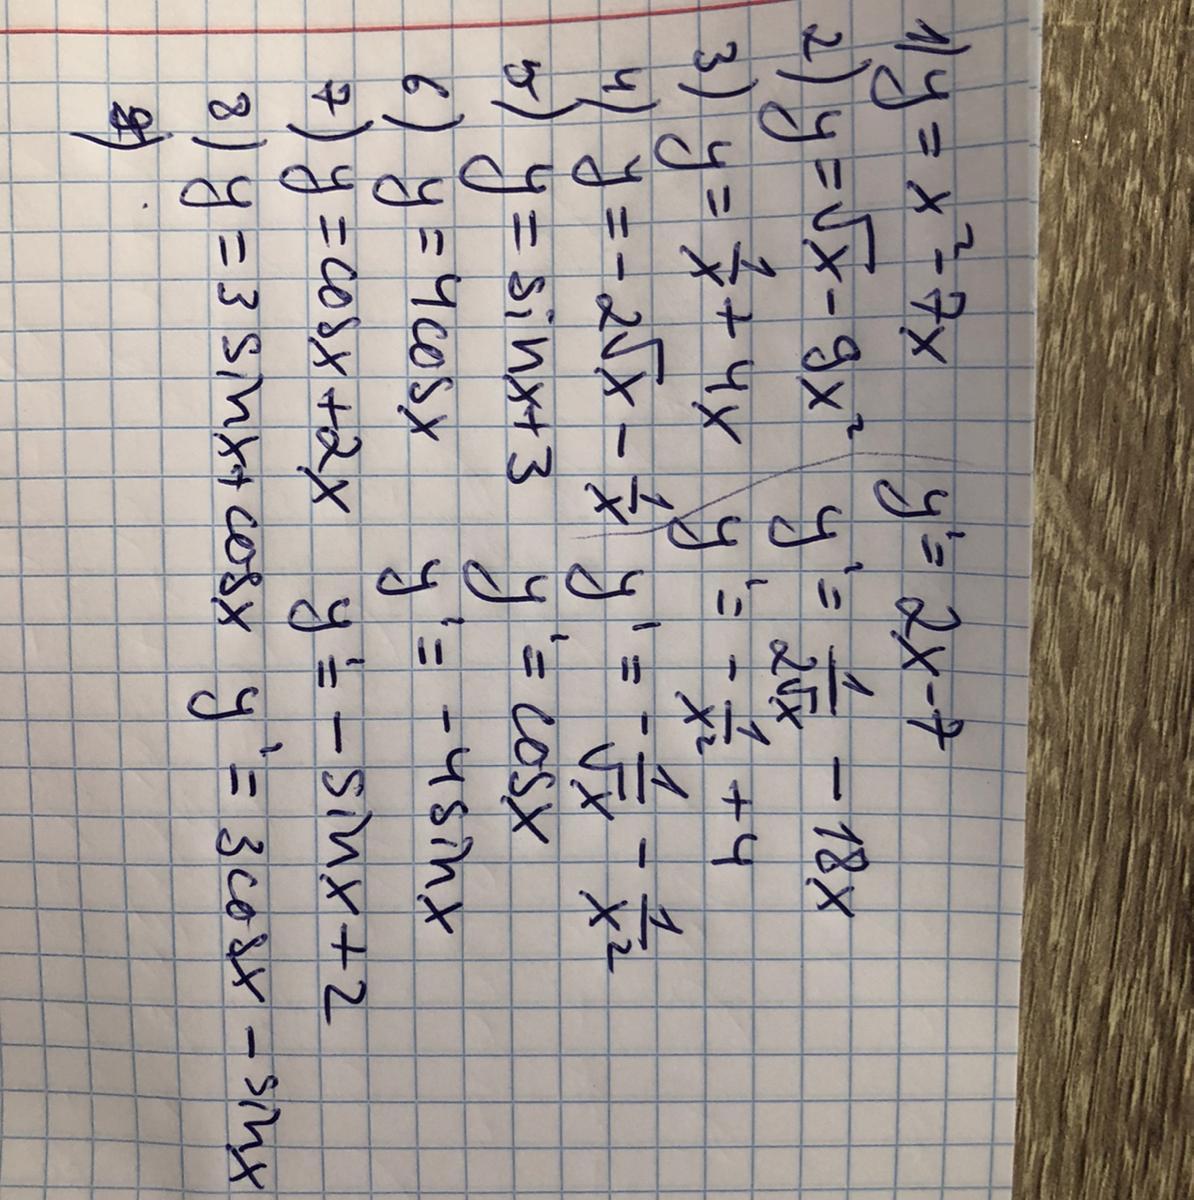 1) y = x² - 7x y' = 2x - 7
2) y = √x - 9x² y' = 1/(2√x) - 18x
3) y = 1/x + 4x y' = - 1/x² + 4
4) y = - 2√x - 1/x y' = - 1/√x - 1/x²
5) y = sinx + 3 y' = cosx
6) y = 4cosx y' = - 4sinx
7) y = cosx + 2x y' = - sinx + 2
8) y = 3 sinx + cosx y' = 3cosx - sinx